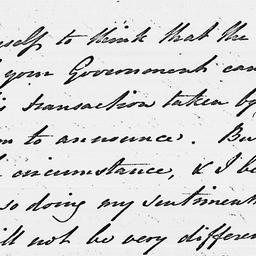 myself to think that the
your Government can
is transaction taken by
to announce. Bu
circumstance, & I be
so doing my sentiment
ill not be very differen